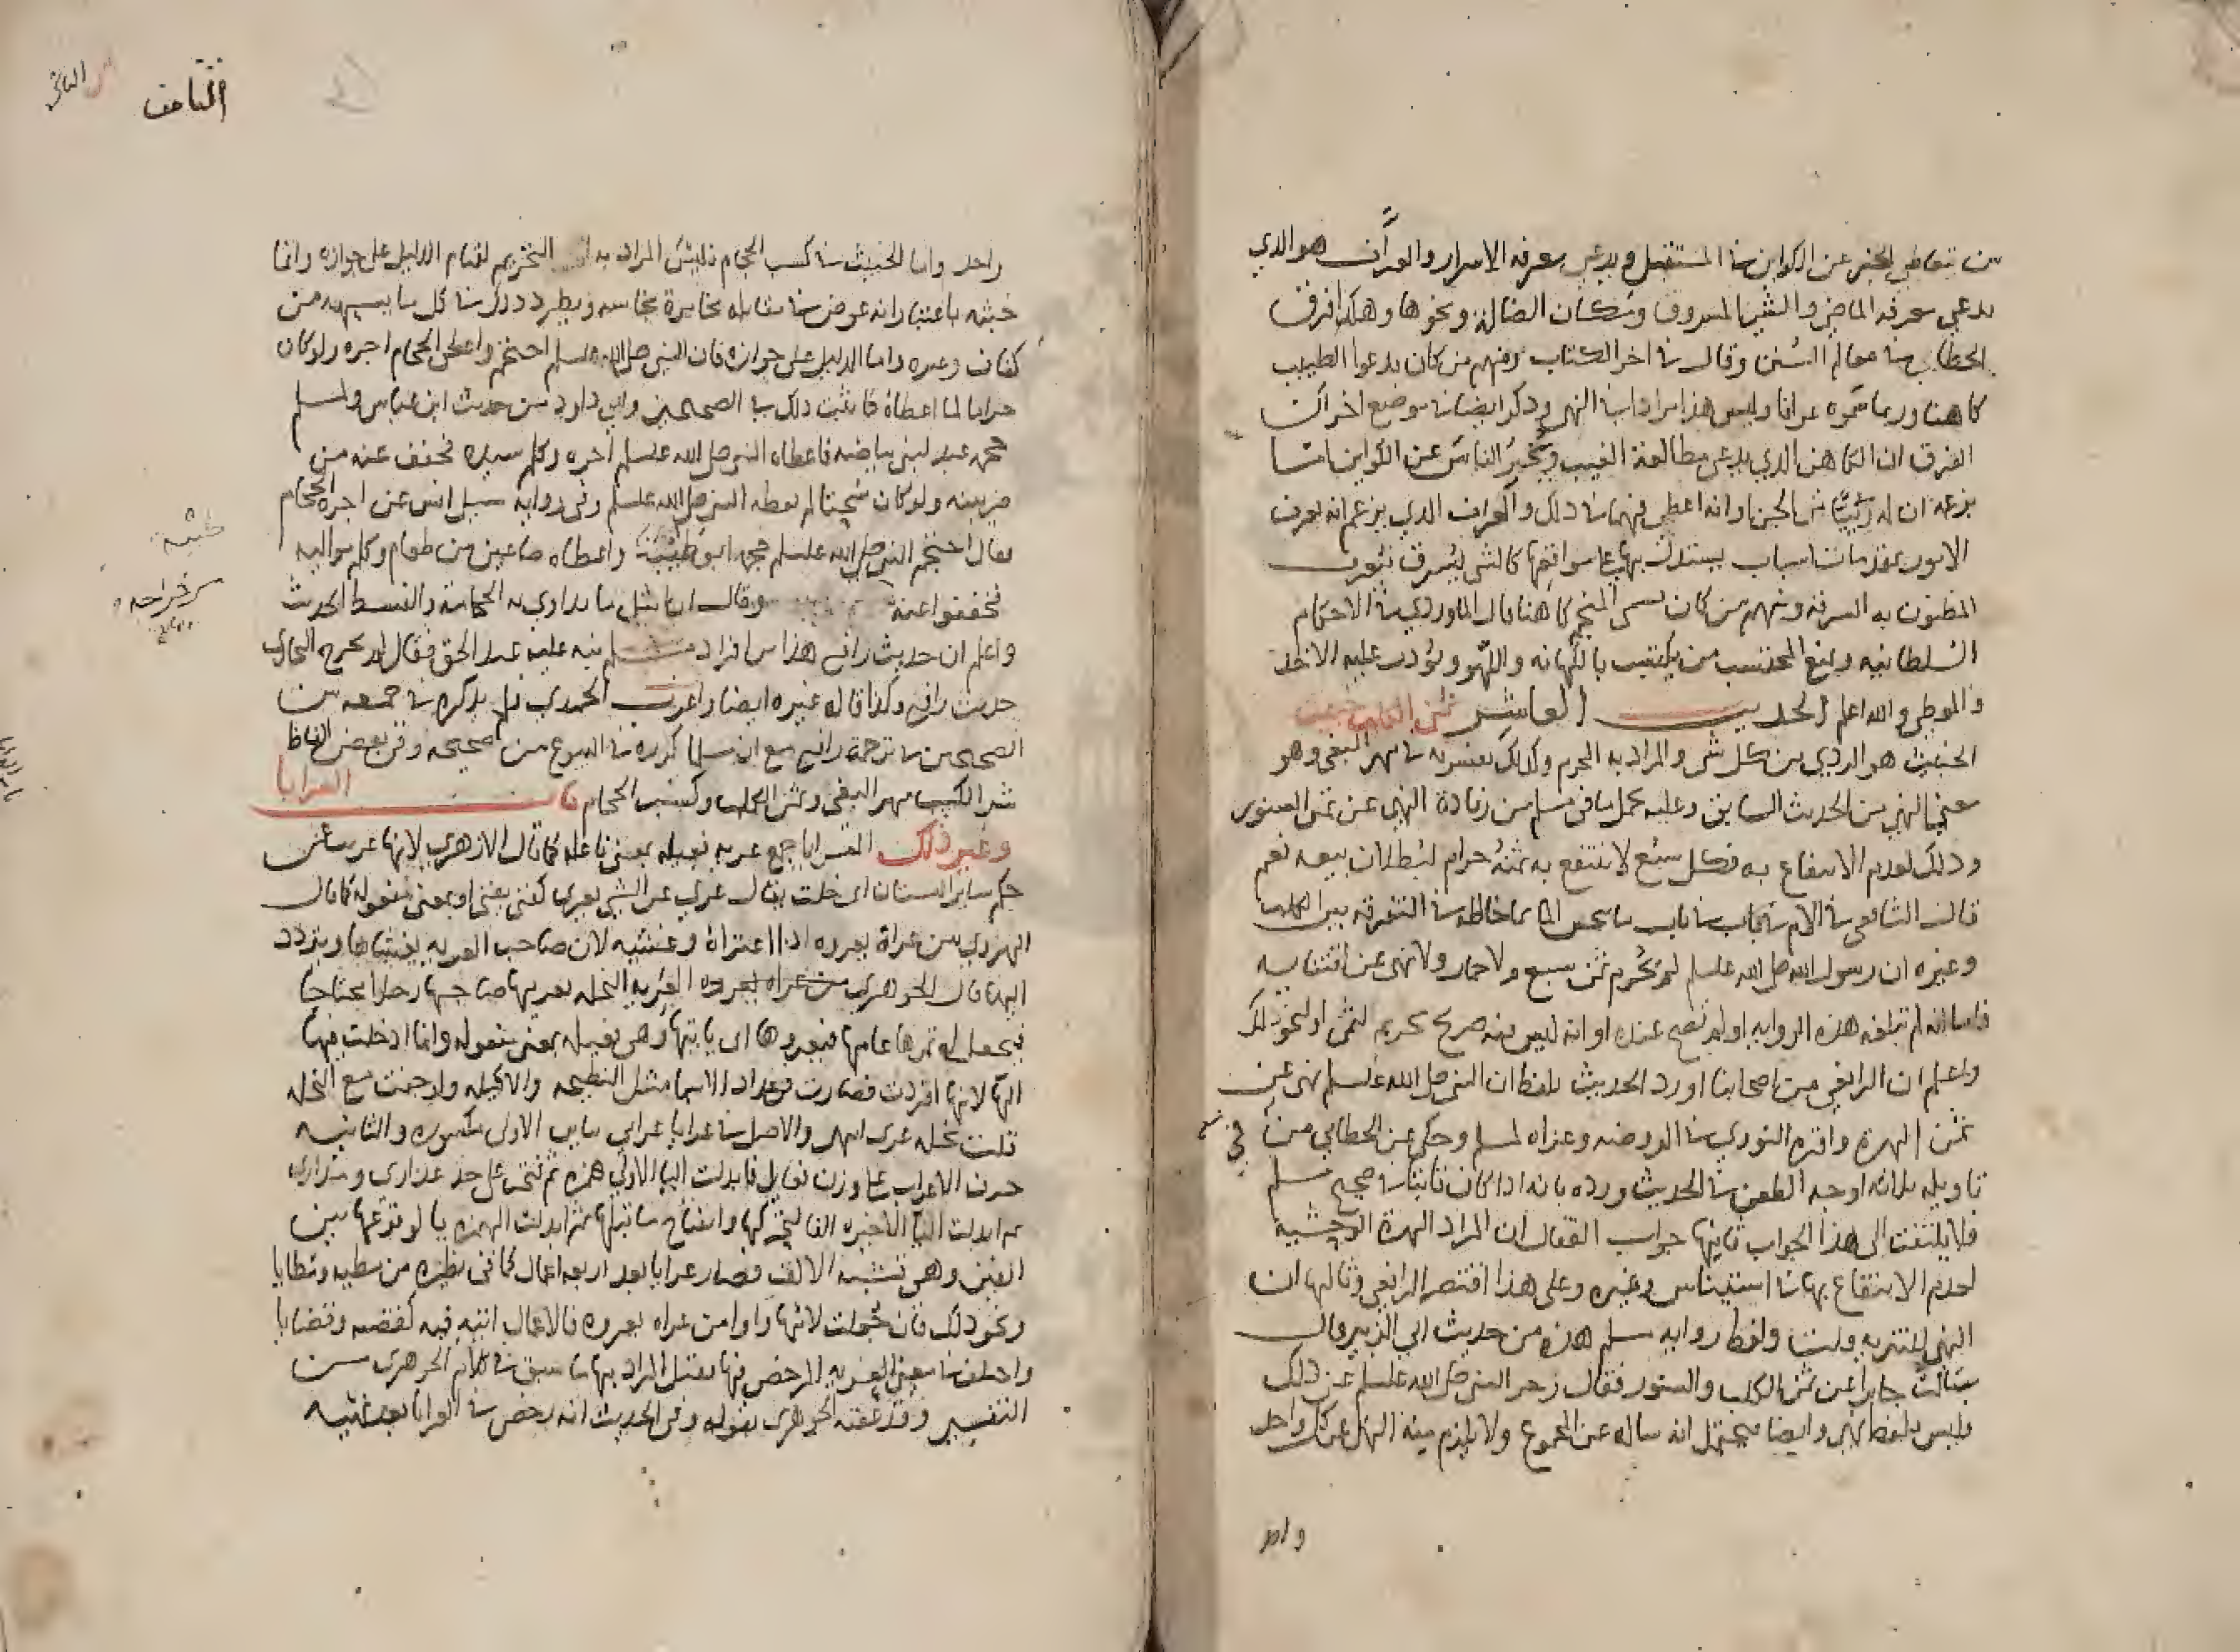 من يتعاطى الخبر عن الكواين في المستقبل ويدعي معرفة الاسرار والعراف هو الذي
يدعي معرفة الماضي والشي المسروق ومكان الضالة ونحوها وهكذا فرق
الخطابي في معالم السنن وقال في اخر الكتاب ومنهم من كان يدعوا الطبيب
كاهنا وربما سموه عرافا وليس هذا مرادا في النهي وذكر ايضا في موضع اخر ان
الفرق ان الكاهن الذي يدعي مطالعة الغيب ويخبر الناس عن الكواين اما
بزعمه ان له رئيا من الجن او انه اعطي فهما في ذلك والعراف الذي يزعم انه يعرف
الامور بمقدمات اسباب يستدل بها على مواقعها كالشي يسرق فيعرف
المظنون به السرقة ومنهم من كان يسمى المنجم كاهنا قال الماوردي في الاحكام
السلطانيه ويمنع المحتسب من يكتسب بالكهانه واللهو ويؤدب عليه الاخذ
والمعطي والله اعلم الحديث العاشر ثمن الكلب خبيث
الخبيث هو الردي من كل شي والمراد به المحرم وكذلك يفسر به في مهر البغي وهو
معنى النهي من الحديث السابق وعليه يحمل ما في مسلم من زيادة النهي عن ثمن السنور
وذلك لعدم الانتفاع به فكل سبع لا ينتفع به ثمنه حرام لبطلان بيعه نعم
قال الشافعي في الام في باب ما
وغيره ان رسول الله صلى الله عليه وسلم لم يحرم ثمن سبع ولا حمار ولا نهى عن اقتنايه
فاما انه لم تبلغه هذه الروايه او لم تصح عنده او انه ليس فيه صريح تحريم لثمن او لنحو ذلك
واعلم ان الرافعي من اصحابنا اورد الحديث بلفظ ان النبي صلى الله عليه وسلم نهى عن
ثمن الهرة واقره النووي في الروضه وعزاه لمسلم وحكى عن الخطابي من
في
تاويله ثلاثه اوجه الطعن في الحديث ورده بانه اذا كان ثابتا في صحيح مسلم
فلا يلتفت الى هذا الجواب ثانيها جواب القفال ان المراد الهرة الوحشيه
لعدم الانتفاع بها في استيناس وغيره وعلى هذا اقتصر الرافعي وثالثها ان
النهي للتنزيه قلت ولفظ روايه مسلم هذه من حديث ابي الزبير قال
سالت جابرا عن ثمن الكلب والسنور فقال زجر النبي صلى الله عليه وسلم عن ذلك
وليس بلفظ نهي وايضا يحتمل انه ساله عن المجموع ولا يلزم منه النهي عن كل واحد
واما
الثامن
واحد واما الخبيث في كسب الحجام فليس المراد به التحريم لقيام الدليل على جوازه وانما
خبثه باعتبار انه عوض في مقابله مخامرة نجاسه ويطرد ذلك في كل ما يشبهه من
كناف وغيره واما الدليل على جوازه فان النبي صلى الله عليه وسلم احتجم واعطى الحجام اجره ولو كان
حراما لما اعطاه كما ثبت ذلك في الصحيحين وابي داود من حديث ابن عباس ولمسلم
حجمه عبد لبني بياضه فاعطاه النبي صلى الله عليه وسلم اجره وكلم سيده فخفف عنه من
ضريبته ولو كان سحتا لم يعطه النبي صلى الله عليه وسلم وفي روايه سيل انس عن اجرة الحجام
فقال احتجم النبي صلى الله عليه وسلم حجمه ابو طيبة واعطاه صاعين من طعام وكلم مواليه
طيبة
فخففوا عنه وقال ان امثل ما تداويتم به الحجامة والقسط الحديث
من خراجه
واعلم ان حديث رافع هذا من افراد مسلم نبه عليه عبد الحق فقال لم يخرج البخاري
حديث رافع وكذا قاله غيره ايضا واغرب الحميدي فلم يذكره في جمعه بين
الصحيحين في ترجمة رافع مع ان مسلما كرره في البيوع من صحيحه وفي بعض الفاظه
شر الكسب مهر البغي وثمن الكلب وكسب الحجام باب العرايا
وغير ذلك العرايا جمع عريه فعيله بمعنى فاعله كما قال الازهري لانها عريت من
حكم ساير البستان اي خلت يقال عري عن الشي يعرى كغني يغنى او بمعنى مفعوله كما قال
الهروي من عراه يعروه اذا اعتراه وغشيه لان صاحب العريه يغشاها ويتردد
اليها قال الجوهري من عراه يعروه العريه النخله يعريها صاحبها رجلا محتاجا
فيجعل له ثمرها عامها فيعروها اي ياتيها وهي فعيله بمعنى مفعوله وانما ادخلت فيها
الها لانها افردت فصارت في عداد الاسما مثل النطيحه والاكيله ولو جيت مع النخله
قلت نخله عري انتهى والاصل في عرايا عرايي بيايين الاولى مكسوره والثانيه
حرف الاعراب على وزن فعايل فابدلت اليا الاولى همزه ثم فتحت على حد عذارى ومدارى
ثم ابدلت اليا الاخيره الفا لتحركها وانفتاح ما قبلها ثم ابدلت الهمزه يا لوقوعها بين
الفين وهي تشبه الالف فصار عرايا بعد اربعه اعمال كما في نظيره من مطيه ومطايا
ونحو ذلك فان جعلت لامها واوا من عراه يعروه فالاعمال
واختلف في معنى العريه المرخص فيها فقيل المراد بها ما سبق في كلام الجوهري من
التفسير وقد عقبه الجوهري بقوله وفي الحديث انه رخص في العرايا بعد نهيه